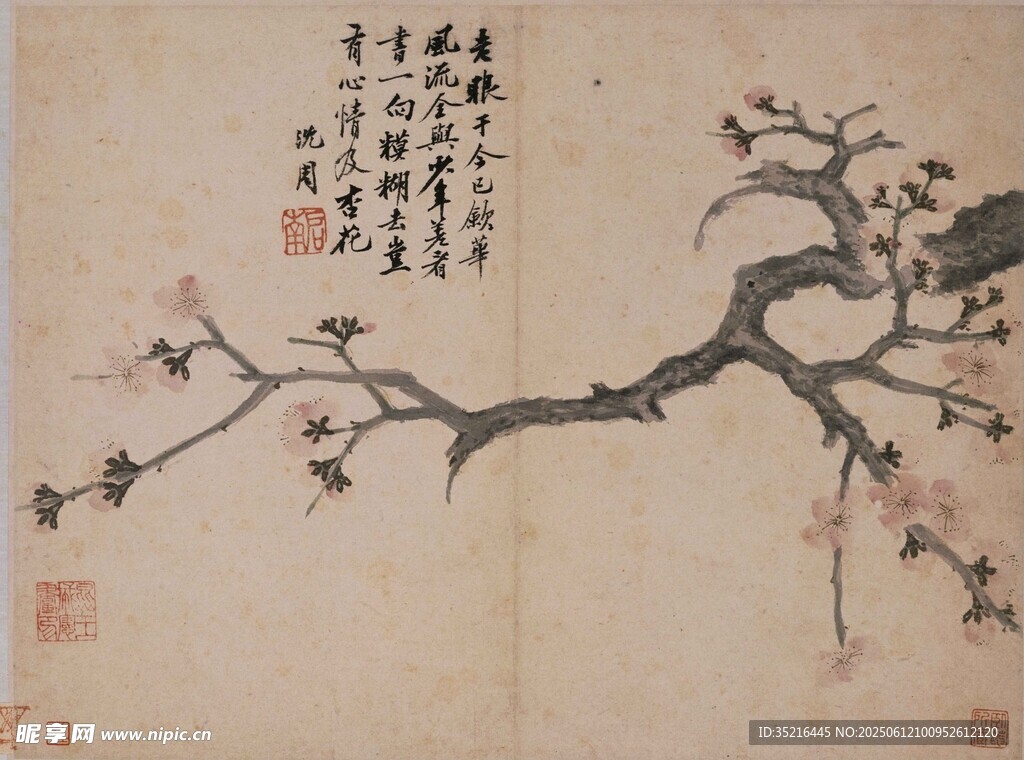 老眼于今已歛華
風流全與少年差看
書一向糢糊去豈
有心情及杏花
沈周
啟南
昵享网 www.nipic.cn
ID:35216445 NO:20250612100952612120